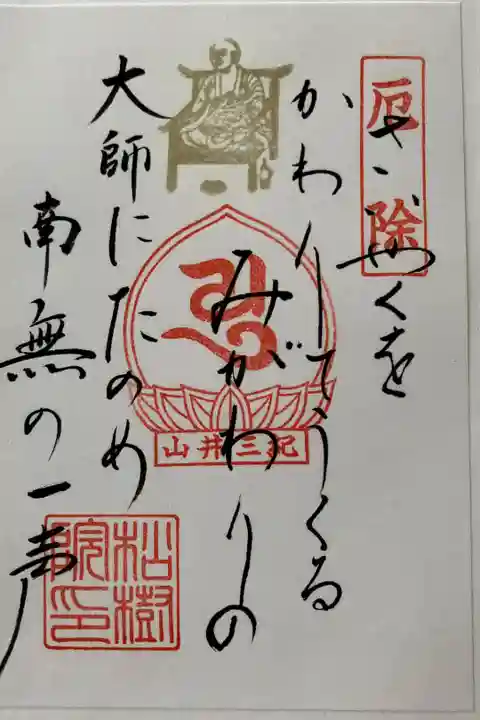 厄除
さいやくを
かわりてうくる
みがわりの
大師にたのめ
南無の一声
紀三井山
松樹院印